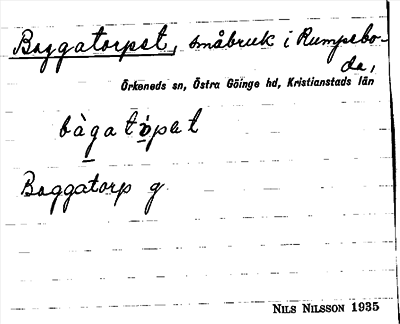 Baggatorpet, småbruk i Rumpebo-
da,
Örkeneds sn, Östra Göinge hd, Kristianstads län
Baggatorp g
NILS NILSSON 1935